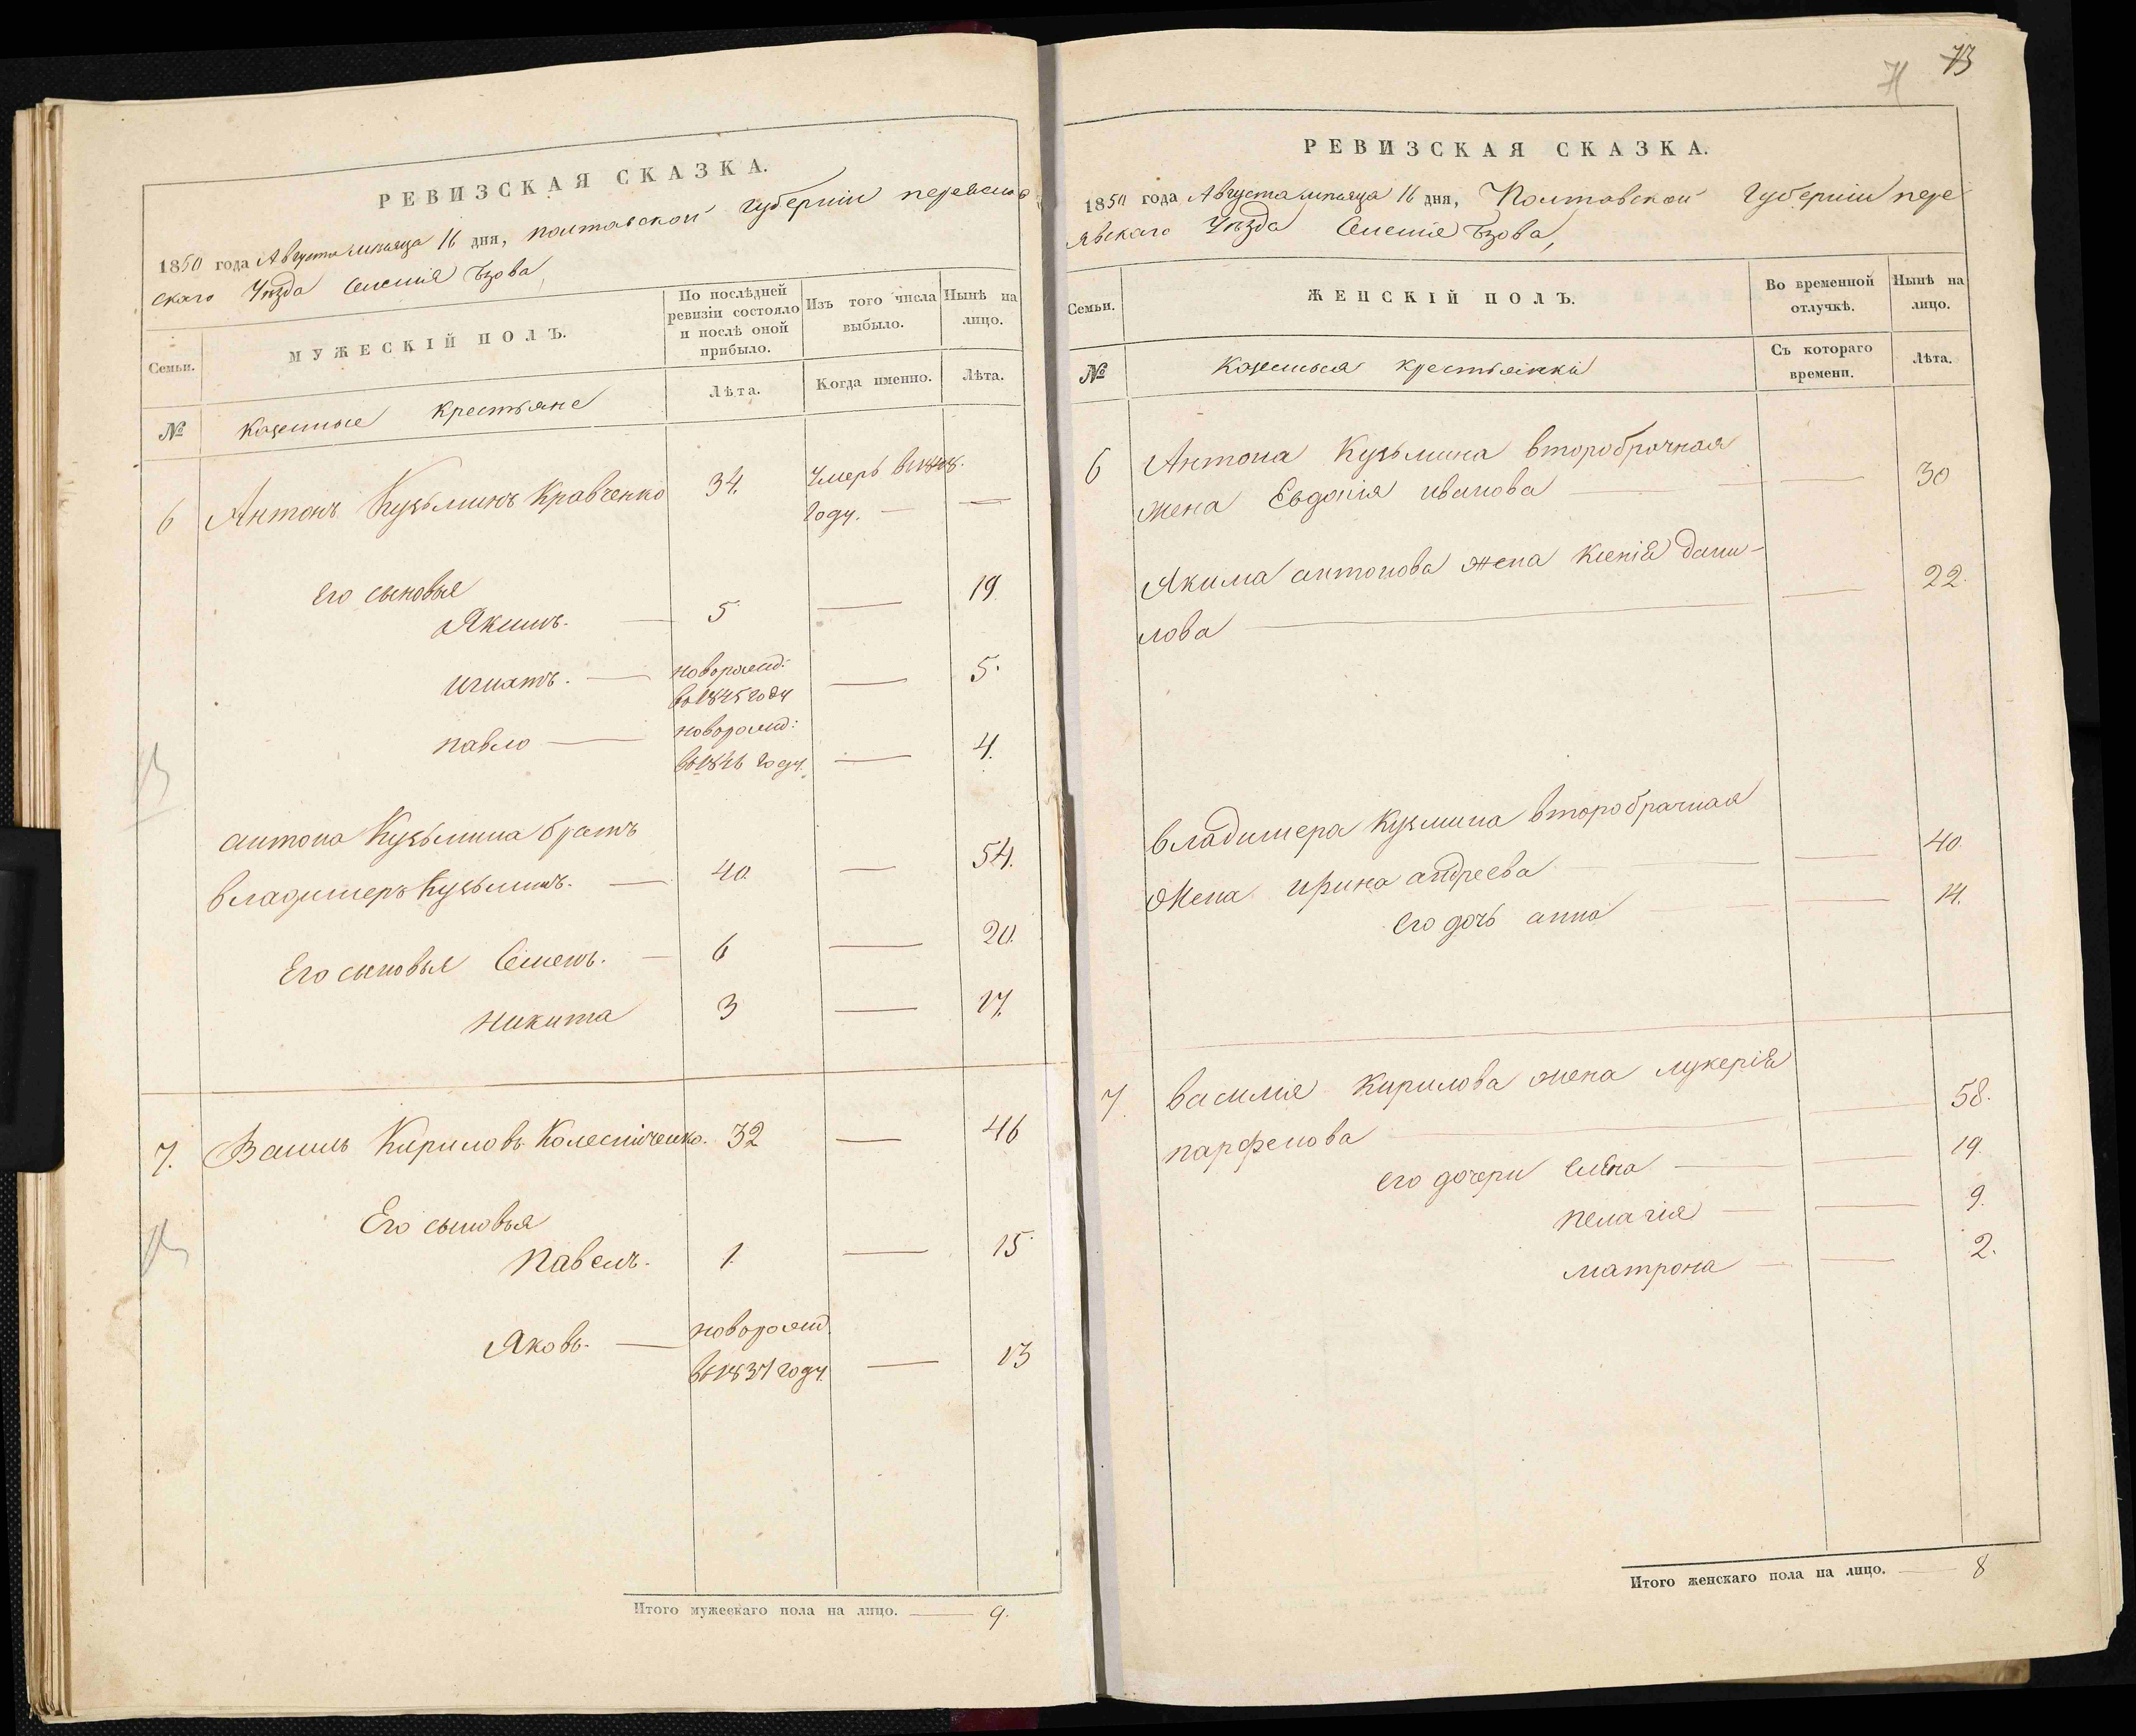 РЕВИЗСКАЯ СКАЗКА.
1850 года Августа мѣсяца 16 дня, Полтавской Губерніи переяслав
скаго Уѣзда Селенія
Семьи.
МУЖЕСКІЙ ПОЛЪ.
По послѣдней ревизіи состояло и послѣ оной прибыло.
Изъ того числа выбыло.
Нынѣ на лицо.
№
Казенные крестьяне
Лѣта.
Когда именно.
Лѣта.
6 Антонъ Кузьминъ Кравченко 34. Умеръ
году. — —
его сыновья
Якимъ. — 5 — 19.
игнатъ. — новорожд: — 5.
въ 1845 году
павло — новорожд: — 4.
въ 1846 году.
антона Кузьмина братъ
владимеръ Кузьминъ. — 40. — 54.
Его сыновья Семенъ. — 6 — 20.
никита 3 — 17.
7. Василь Кириловъ Колесниченко. 32 — 46
Его сыновья
Павелъ. 1. — 15
Яковъ. — новорожд.
въ 1837 году. — 13
Итого мужескаго пола на лицо. — 9.
73
71
РЕВИЗСКАЯ СКАЗКА.
1850 года Августа мѣсяца 16 дня, Полтавской Губерніи пере
явскаго Уѣзда Селенія
Семьи.
ЖЕНСКІЙ ПОЛЪ.
Во временной отлучкѣ.
Нынѣ на лицо.
№
Казенныя крестьянки
Съ котораго времени.
Лѣта.
6 Антона Кузьмина второбрачная
жена Евдокія иванова — — 30
Якима антонова жена Ксенія дани-
лова — — 22.
владимера Кузмина второбрачная
жена ирина андреева — — 40.
его дочь анна — — 14.
7. василія Кирилова жена лукерія
парфенова — — 58.
его дочери елена — — 19.
пелагія — — 9.
матрона — — 2.
Итого женскаго пола на лицо. — 8